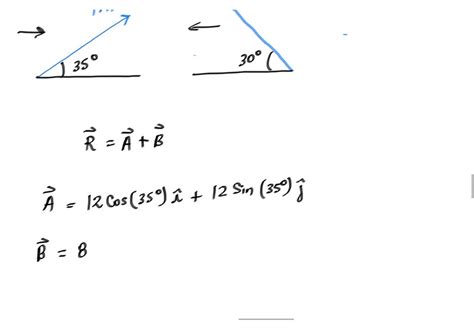 35° 30°
R⃗ = A⃗ + B⃗
A⃗ = 12 Cos(35°) î + 12 Sin(35°) ĵ
B⃗ = 8